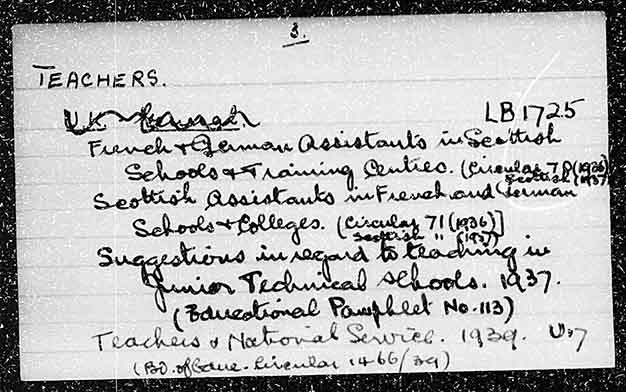 3.
TEACHERS.
U.K. LB1725
French & German Assistants in Scottish
Schools & Training Centres. (Circular 70 (1936)
Scottish (1937)
Scottish Assistants in French and German
Schools & Colleges. (Circular 71 (1936)]
Scottish " (1937)
Suggestions in regard to teaching in
Junior Technical Schools. 1937.
(Educational Pamphlet No. 113)
Teachers & National Service. 1939.
(BD. of Educ. Circular 1466/39)